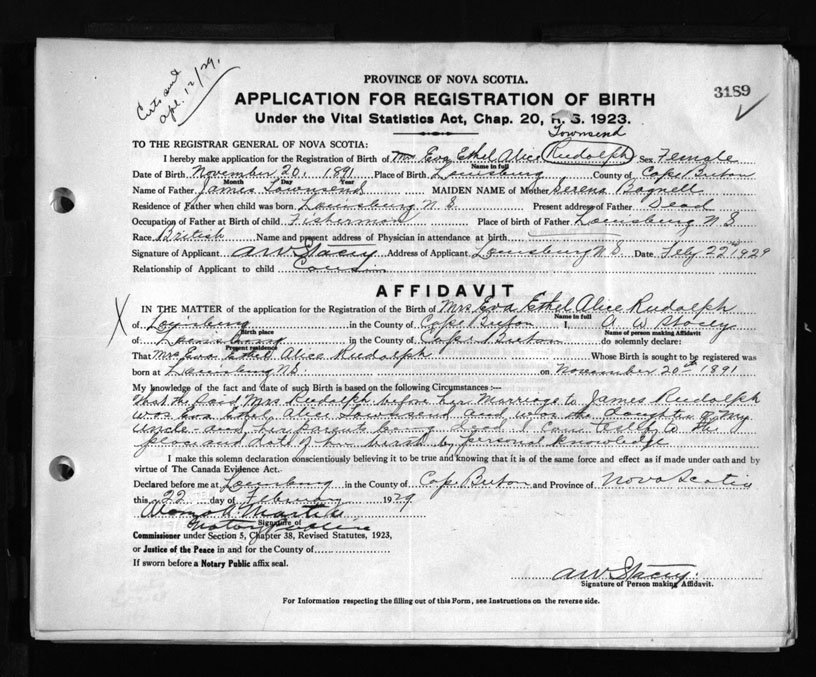 Certs and
Apl. 12/29.
PROVINCE OF NOVA SCOTIA.
3189
APPLICATION FOR REGISTRATION OF BIRTH
Under the Vital Statistics Act, Chap. 20, R. S. 1923.
Townsend
TO THE REGISTRAR GENERAL OF NOVA SCOTIA:
I hereby make application for the Registration of Birth of Mrs Eva Ethel Alice Rudolph Sex Female
Name in full
Date of Birth November 20, 1891 Place of Birth Louisburg County of Cape Breton
Month Day Year
Name of Father James Townsend MAIDEN NAME of Mother Serena Bagnell
Residence of Father when child was born Louisburg N S Present address of Father Dead
Occupation of Father at Birth of child Fisherman Place of birth of Father Louisburg N S
Race British Name and present address of Physician in attendance at birth
Signature of Applicant A W Stacey Address of Applicant Louisburg N S Date Feby 22nd 1929
Relationship of Applicant to child Cousin
AFFIDAVIT
IN THE MATTER of the application for the Registration of the Birth of Mrs Eva Ethel Alice Rudolph
Name in full
of Louisburg in the County of Cape Breton I, A. W. Stacey
Birth place Name of person making Affidavit
of Louisburg in the County of Cape Breton do solemnly declare:
Present residence
That Mrs Eva Ethel Alice Rudolph Whose Birth is sought to be registered was
born at Louisburg N.S. on November 20th 1891
My knowledge of the fact and date of such Birth is based on the following Circumstances :—
That the Said Mrs Rudolph before her Marriage to James Rudolph
was Eva Ethel Alice Townsend and was the daughter of My
Uncle and her Parents being dead I can testify to the
place and date of her birth by personal knowledge
I make this solemn declaration conscientiously believing it to be true and knowing that it is of the same force and effect as if made under oath and by
virtue of The Canada Evidence Act.
Declared before me at Louisburg in the County of Cape Breton and Province of Nova Scotia
this 22 day of February 1929
Martell
Signature of
Notary Public
Commissioner under Section 5, Chapter 38, Revised Statutes, 1923,
or Justice of the Peace in and for the County of
If sworn before a Notary Public affix seal.
A W Stacey
Signature of Person making Affidavit.
For Information respecting the filling out of this Form, see Instructions on the reverse side.